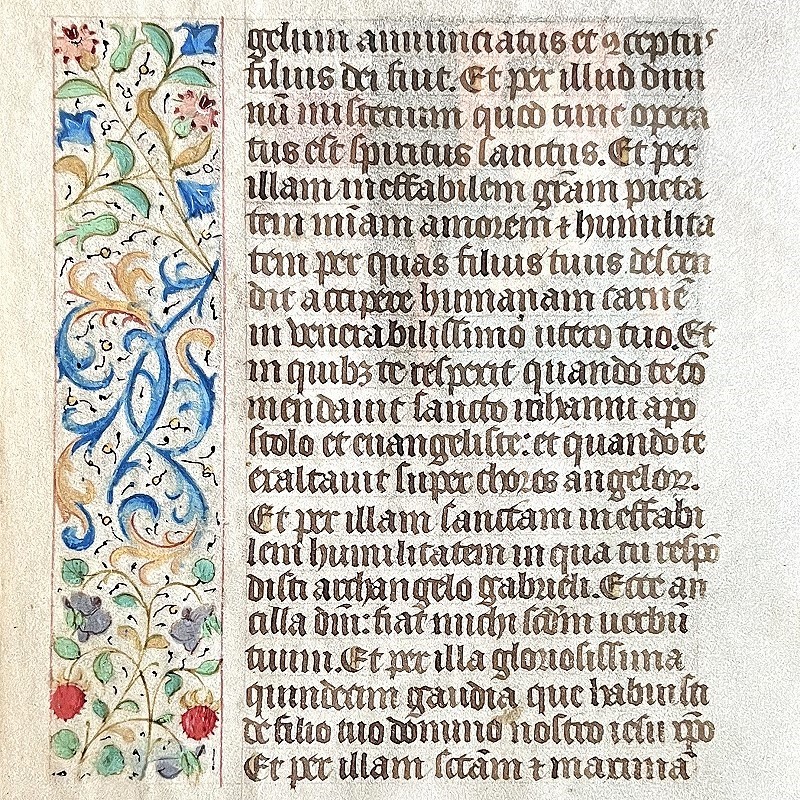 gelum annunciatus et ꝯceptus
filius dei fuit. Et per illud diui
nū misterium quod tunc opera
tus est spiritus sanctus. Et per
illam ineffabilem grām pieta
tem miām amorem ⁊ humilita
tem per quas filius tuus descen
dit accipere humanam carnē
in venerabilissimo utero tuo. Et
in quibꝫ te respexit quando te cō
mendauit sancto iohanni apo
stolo et euangeliste: et quando te
exaltauit super choros angeloꝝ.
Et per illam sanctam ineffabi
lem humilitatem in qua tu respō
disti archangelo gabrieli. Ecce an
cilla dn̄i: fiat michi scd̄m uerbū
tuum. Et per illa gloriosissima
quindecim gaudia que habuisti
de filio tuo domino nostro iesu xp̄o
Et per illam sctām ⁊ maximā